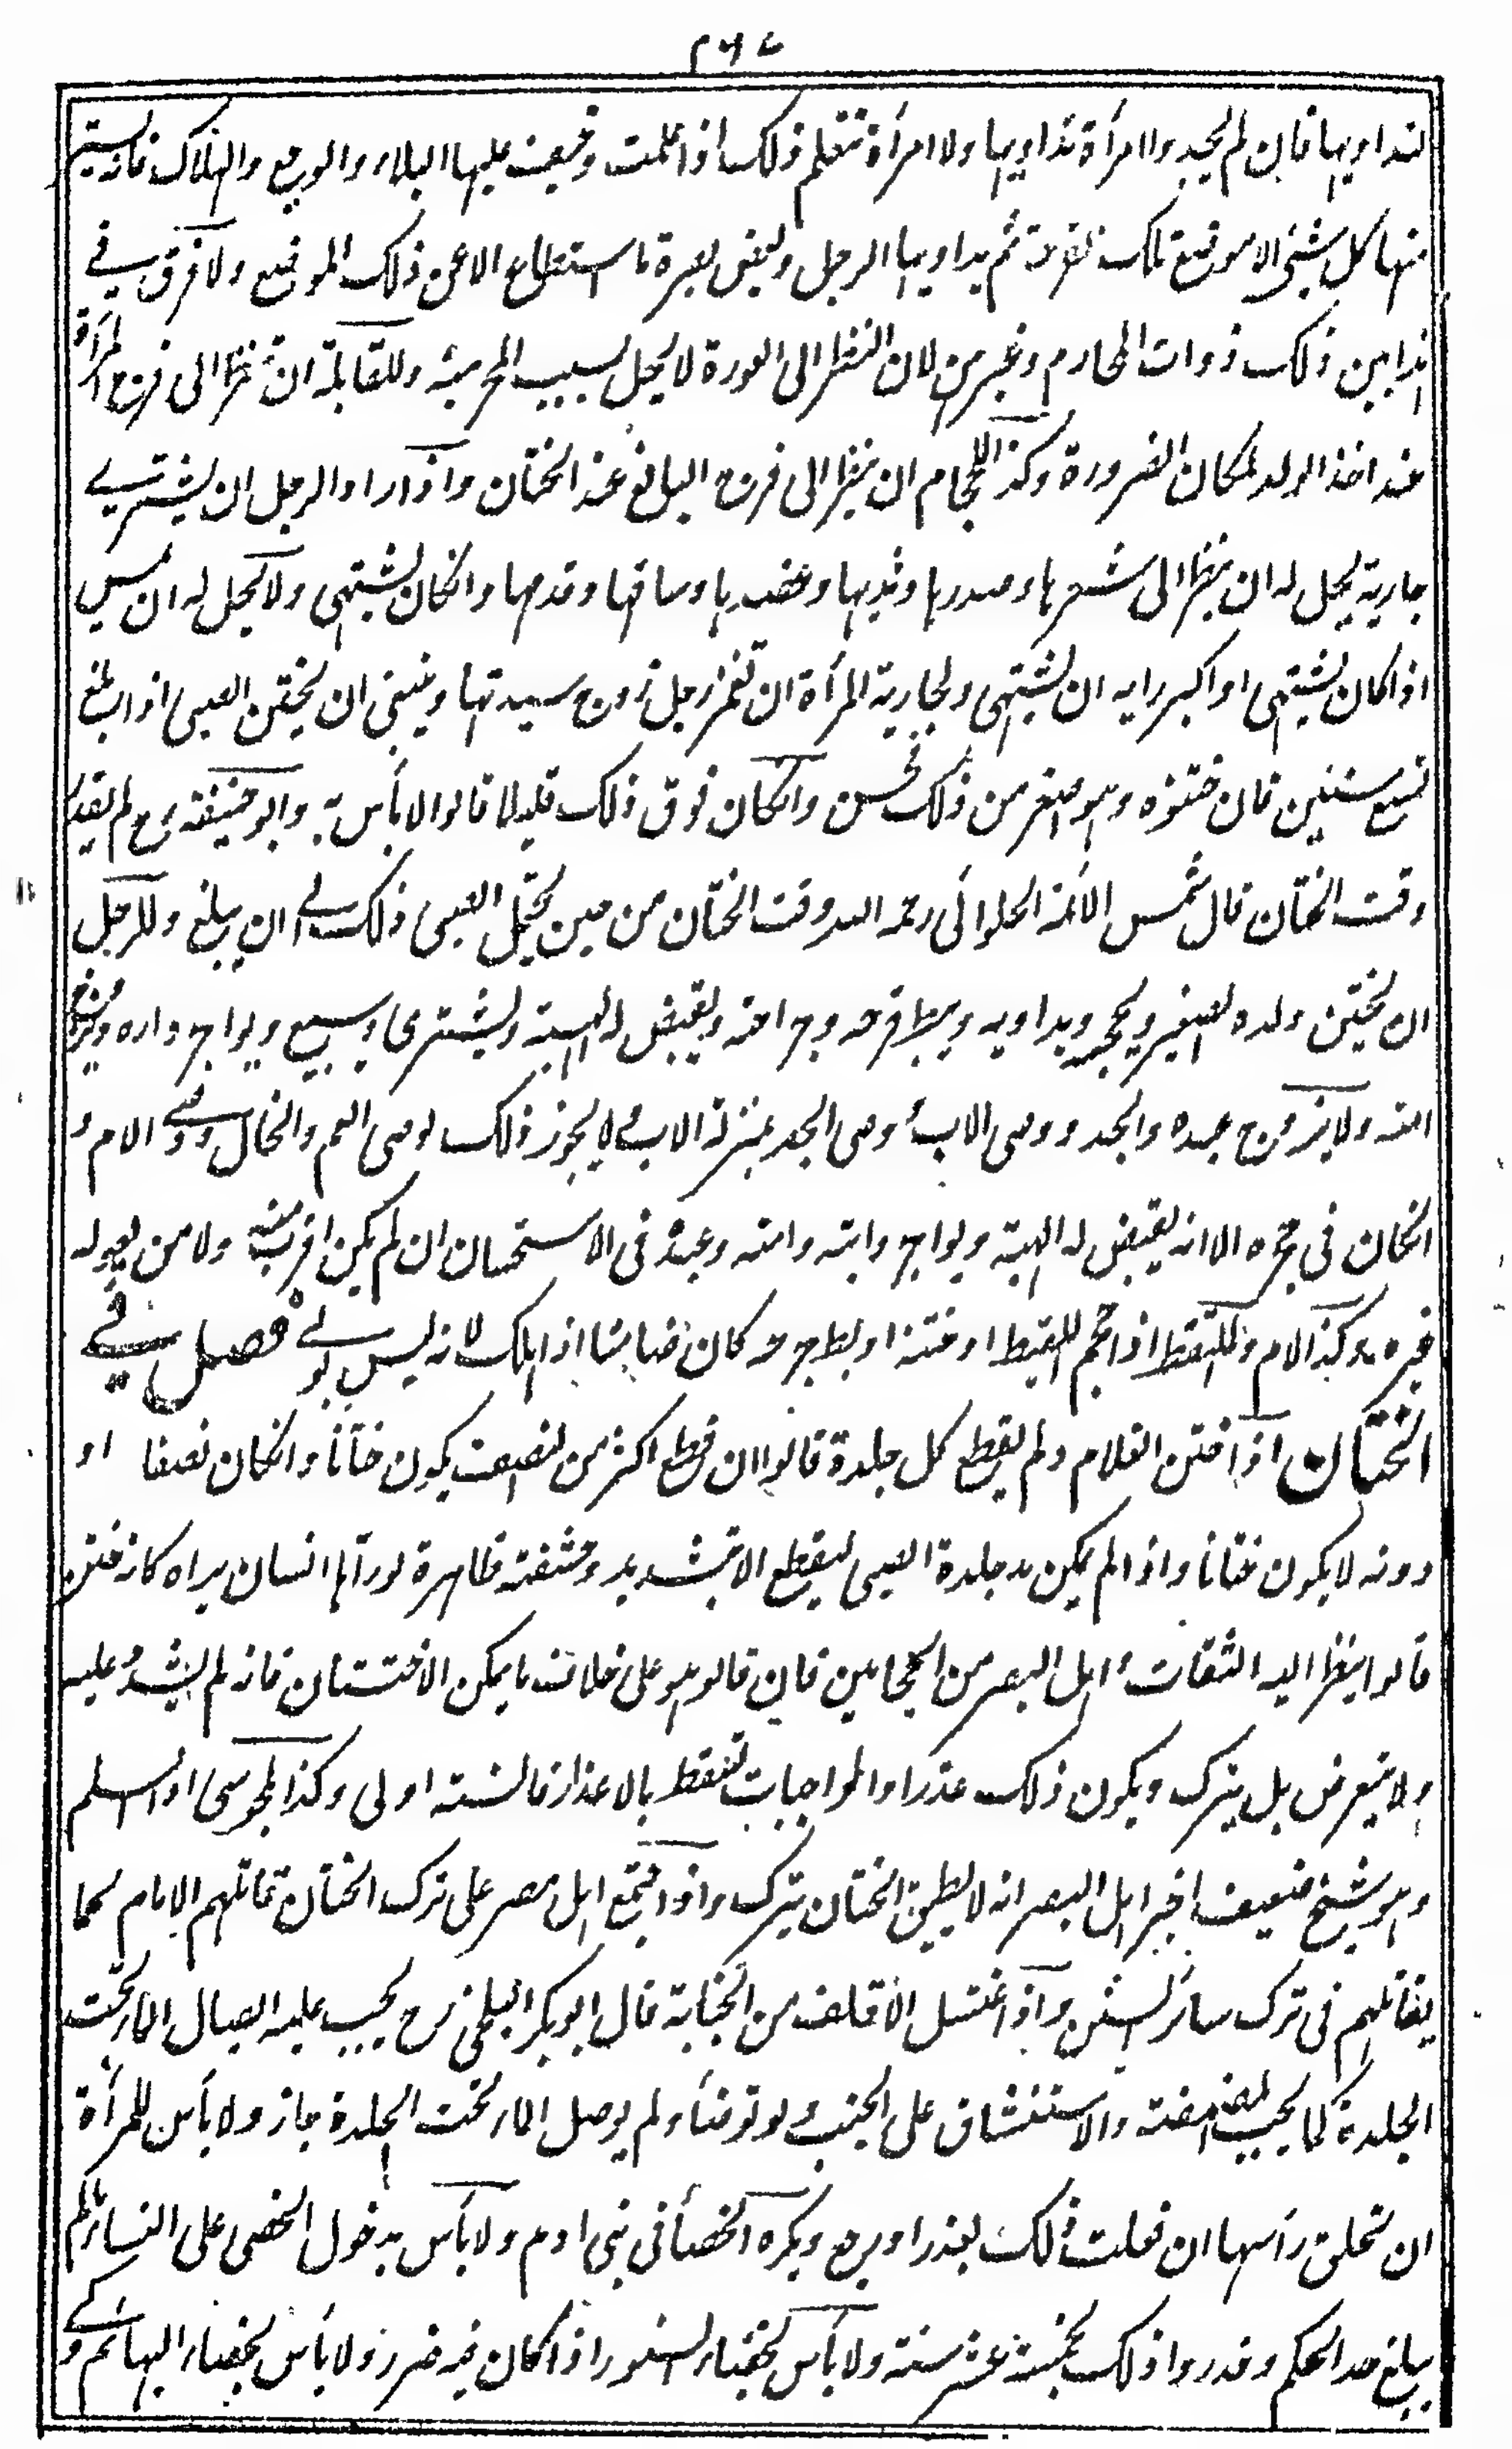 لتداويها فان لم يجدوا امرأة تداويها ولا امرأة تتعلم ذلك اذا علمت وخيف عليها البلاء والوجع والهلاك فانه يستر
منها كل شئ الا موضع تلك القرحة ثم يداويها الرجل ويغض بصره ما استطاع الا عن ذلك الموضع ولا فرق في
هذا بين ذلك ذوات المحارم وغيرهن لان النظر الى العورة لا يحل بسبب المحرمية وللقابلة ان تنظر الى فرج المرأة
عند اخذ الولد لمكان الضرورة وكذا للحجام ان ينظر الى فرج البالغ عند الختان واذا اراد الرجل ان يشتري
جارية يحل له ان ينظر الى شعرها وصدرها وثديها وعضدها وساقها وقدمها وانكان يشتهى ولا يحل له ان يمس
اذا كان يشتهى او اكبر رايه ان يشتهى ولجارية المرأة ان تغمز رجل زوج سيدتها وينبغى ان يختن الصبى اذا بلغ
تسع سنين فان ختنوه وهو اصغر من ذلك فحسن وانكان فوق ذلك قليلا قالوا لا بأس به وابو حنيفة رح لم يقدر
وقت الختان قال شمس الائمة الحلوائى رحمه الله وقت الختان من حين يحتمل الصبى ذلك الى ان يبلغ وللرجل
ان يختن ولده الصغير ويحجمه ويداويه ويبط قرحه وجراحته ويقبض له الهبة ويشترى ويبيع ويواجر داره ويزوج
امته ولا يزوج عبده والجد ووصى الاب ووصى الجد بمنزلة الاب ولا يجوز ذلك لوصى العم والخال ووصى الام و
انكان في حجره الا انه يقبض له الهبة ويواجر دابته وامته وعبده فى الاستحسان ان لم يكن اقرب منه ولا من يعوله
غيره وكذا الام والملتقط اذا حجم اللقيط او ختنه او بط جرحه كان ضامنا اذا هلك لانه ليس بولى فصل في
الختان اذا اختتن الغلام ولم يقطع كل جلدة قالوا ان قطع اكثر من النصف يكون ختانا وانكان نصفا او
دونه لا يكون ختانا واذا لم يمكن مد جلدة الصبى ليقطع الا بتشديد وحشفته ظاهرة لو رآها انسان يراه كانه ختن
قالوا ينظر اليه الثقات و اهل البصر من الحجامين فان قالوا هو على خلاف ما يمكن الاختتان فانه لم يشدد عليه
ولا يتعرض بل يترك ويكون ذلك عذرا والواجبات تسقط بالاعذار فالسنة اولى وكذا المجوسى اذا اسلم
وهو شيخ ضعيف اخبر اهل البصر انه لا يطيق الختان يترك واذا اجتمع اهل مصر على ترك الختان قاتلهم الامام كما
يقاتلهم فى ترك سائر السنن واذا اغتسل الاقلف من الجنابة قال ابو بكر البلخى رح يجب عليه ايصال الماء تحت
الجلدة كما يجب المضمضة والاستنشاق على الجنب ولو توضأ ولم يوصل الماء تحت الجلدة جاز ولا بأس للمرأة
ان تحلق رأسها ان فعلت ذلك لعذر او وجع ويكره الخصاء فى بنى ادم ولا بأس بدخول الخصى على النساء ما لم
يبلغ حد الحكم وقدروا ذلك بخمسة عشر سنة ولا بأس بخصاء السنور اذا كان فيه ضرر ولا بأس بخصاء البهائم و